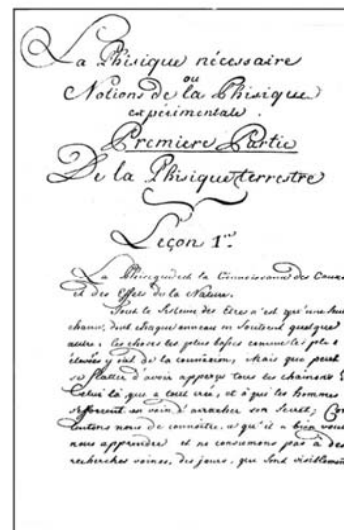 La Phisique nécessaire
ou
Notions de la Phisique
expérimentale.
Premiere Partie
De la Phisique terrestre
Leçon 1re.
La Phisique est la Connoissance des Causes
et des Effets de la Nature.
Tout le Sisteme des Etres n'est qu'une seule
chaine, dont chaque anneau en soutend quelque
autre; les choses les plus basses comme les plus
élevées y ont de la connexion, Mais qui peut
se flatter d'avoir apperçu tous les chainons?
Celui là qui a tout créé, et à qui les hommes
s'efforcent en vain d'arracher son Secret; Con
tentons nous de connoitre, ce qu'il a bien voulu
nous apprendre et ne consumons pas à des
recherches vaines, des jours, qui sont visiblement